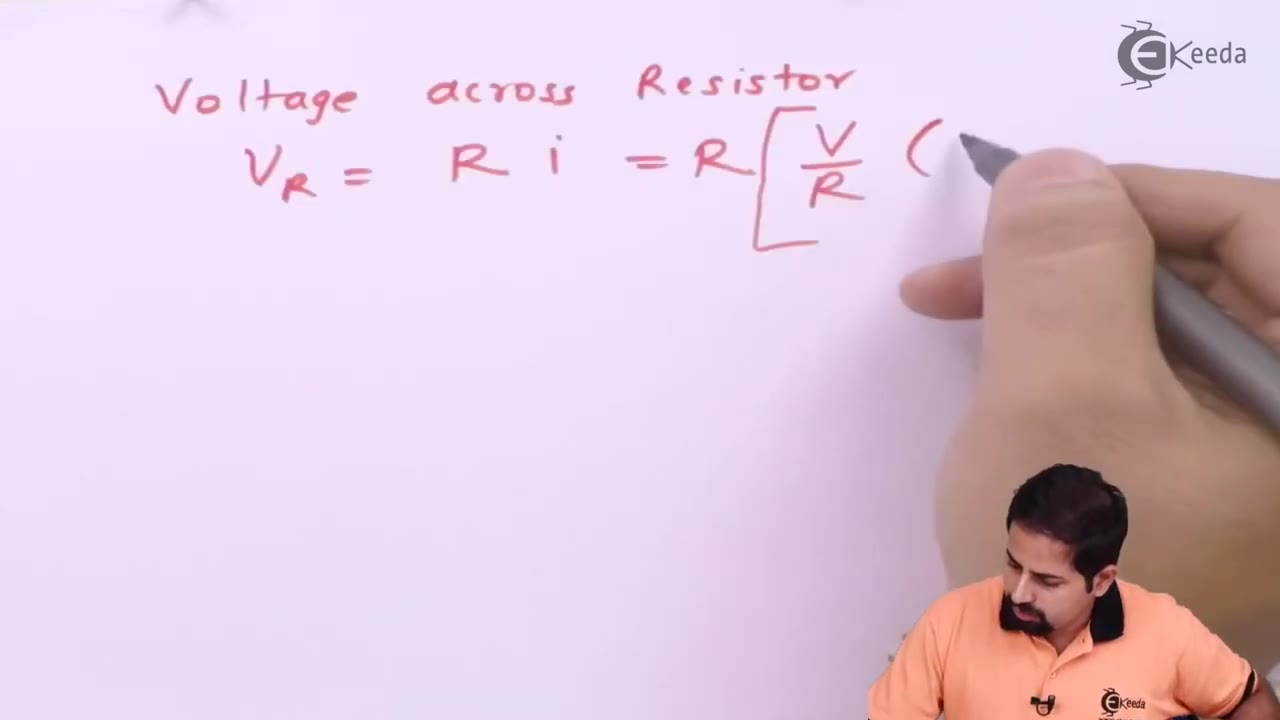 EKeeda
Voltage across Resistor
V_R = R i = R [ V/R (
EKeeda